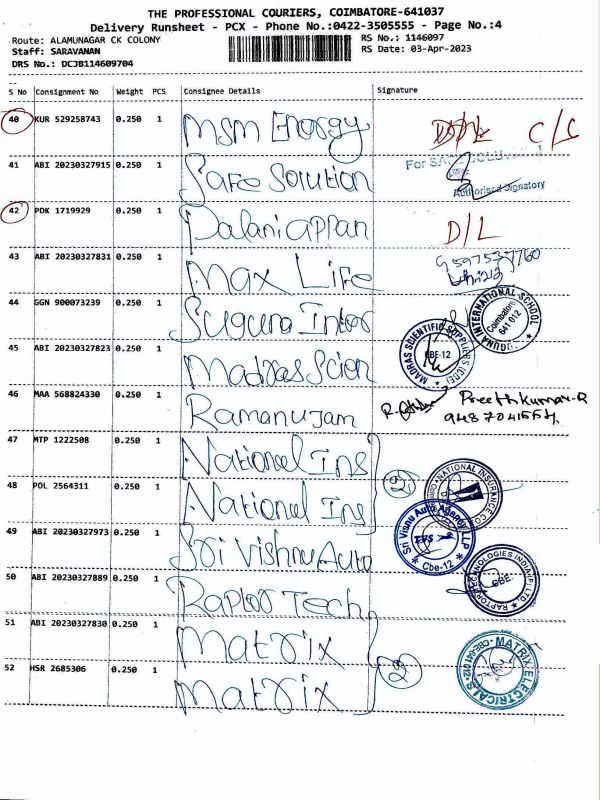 THE PROFESSIONAL COURIERS, COIMBATORE-641037
Delivery Runsheet - PCX - Phone No.:0422-3505555 - Page No.:4
Route: ALAMUNAGAR CK COLONY
RS No.: 1146097
Staff: SARAVANAN
RS Date: 03-Apr-2023
DRS No.: DCJB114609704
S No Consignment No Weight PCS Consignee Details Signature
40 KUR 529258743 0.250 1 MSM Energy C/C
41 ABI 20230327915 0.250 1 Safe Solution
For
Authorised Signatory
42 PDK 1719929 0.250 1 Palaniappan D/L
43 ABI 20230327831 0.250 1 Max Life
44 GGN 900073239 0.250 1 Suguna Inter
SUGUNA INTERNATIONAL SCHOOL
Coimbatore
641 012
45 ABI 20230327823 0.250 1 Madras Scien
MADRAS SCIENTIFIC SUPPLIERS (CBE)
CBE-12
46 MAA 568824330 0.250 1 Ramanujam
Preethkumar.R
47 MTP 1222508 0.250 1 National Ins
2
48 POL 2564311 0.250 1 National Ins
NATIONAL INSURANCE CO
49 ABI 20230327973 0.250 1 Sri Vishnu Auto
Sri Visnu Auto Agency LLP
TVS
Cbe-12
50 ABI 20230327889 0.250 1 Raptor Tech
RAPTOR TECHNOLOGIES INDIA (P) LTD
CBE
51 ABI 20230327830 0.250 1 Matrix
2
52 HSR 2685306 0.250 1 Matrix
MATRIX ELECTRICALS
CBE-641 012